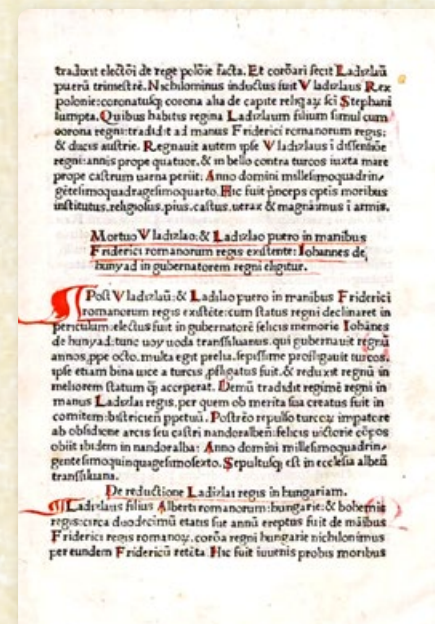 tradunt electōi de rege polōie facta. Et corōari fecit Ladizlaū
puerū trimestrē. Nichilominus inductus fuit Vladizlaus Rex
polonie: coronatusqʒ corona alia de capite reliqꝝ sci Stephani
sumpta. Quibus habitus regina Ladizlaum filium simul cum
corona regni: tradidit ad manus Friderici romanorum regis:
& ducis austrie. Regnauit autem ipse Vladizlaus ī dissensiōe
regni: annis prope quatuor. & in bello contra turcos iuxta mare
prope castrum uarna periit: Anno domini millesimoquadrin,
gētesimoquadragesimoquarto. Hic fuit prīceps optis moribus
institutus. religiosus. pius. castus. uerax & magnāimus ī armis.
Mortuo Vladizlao: & Ladizlao puero in manibus
Friderici romanorum regis existente: Iohannes de
hunyad in gubernatorem regni eligitur.
Post Vladizlaū: & Ladislao puero in manibus Friderici
romanorum regis existēte: cum status regni declinaret in
periculum. electus fuit in gubernatorē felicis memorie Iohānes
de hunyad: tunc uoyuoda transsiluanus. qui gubernauit regnū
annos. ppe octo. multa egit prelia. sepissime profligauit turcos.
ipse etiam bina uice a turcis. pfligatus fuit. & reduxit regnū in
meliorem statum qꝫ acceperat. Demū tradidit regimē regni in
manus Ladizlai regis. per quem ob merita sua creatus fuit in
comitem: bistriciēn ppetuū. Postrēo repulso turcoꝝ impatore
ab obsidione arcis seu castri nandoralbeń: felicis uictorie cōpos
obiit ibidem in nandoralba: Anno domini millesimoquadrin,
gentesimoquinquagesimosexto. Sepultusqʒ est in ecclesia albeń
transsiluana.
De reductione Ladizlai regis in hungariam.
Ladizlaus filius Alberti romanorum: hungarie: & bohemie
regis: circa duodecimū etatis sue annū ereptus fuit de māibus
Friderici regis romanoꝝ. corōa regni hungarie nichilonimus
per eundem Fridericū retēta. Hic fuit iuuenis probis moribus